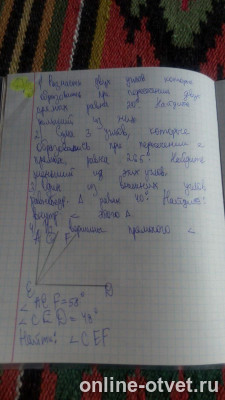 1) Разность двух углов, которые
образовались при пересечении двух
прямых равна 20° Найдите
меньший из них.
2) Сума 3 углов, которые
образовались при пересечении 2
прямых, равна 265° Найдите
меньший из этих углов.
3) Один из внешних углов
равнобедр. Δ равен 40° Найдите:
внутр. ∠ Δ.
4) Из вершины прямого ∠
A C F
E D
∠ AEF=58°
∠ CED=49°
Найти: ∠ CEF
online-otvet.ru